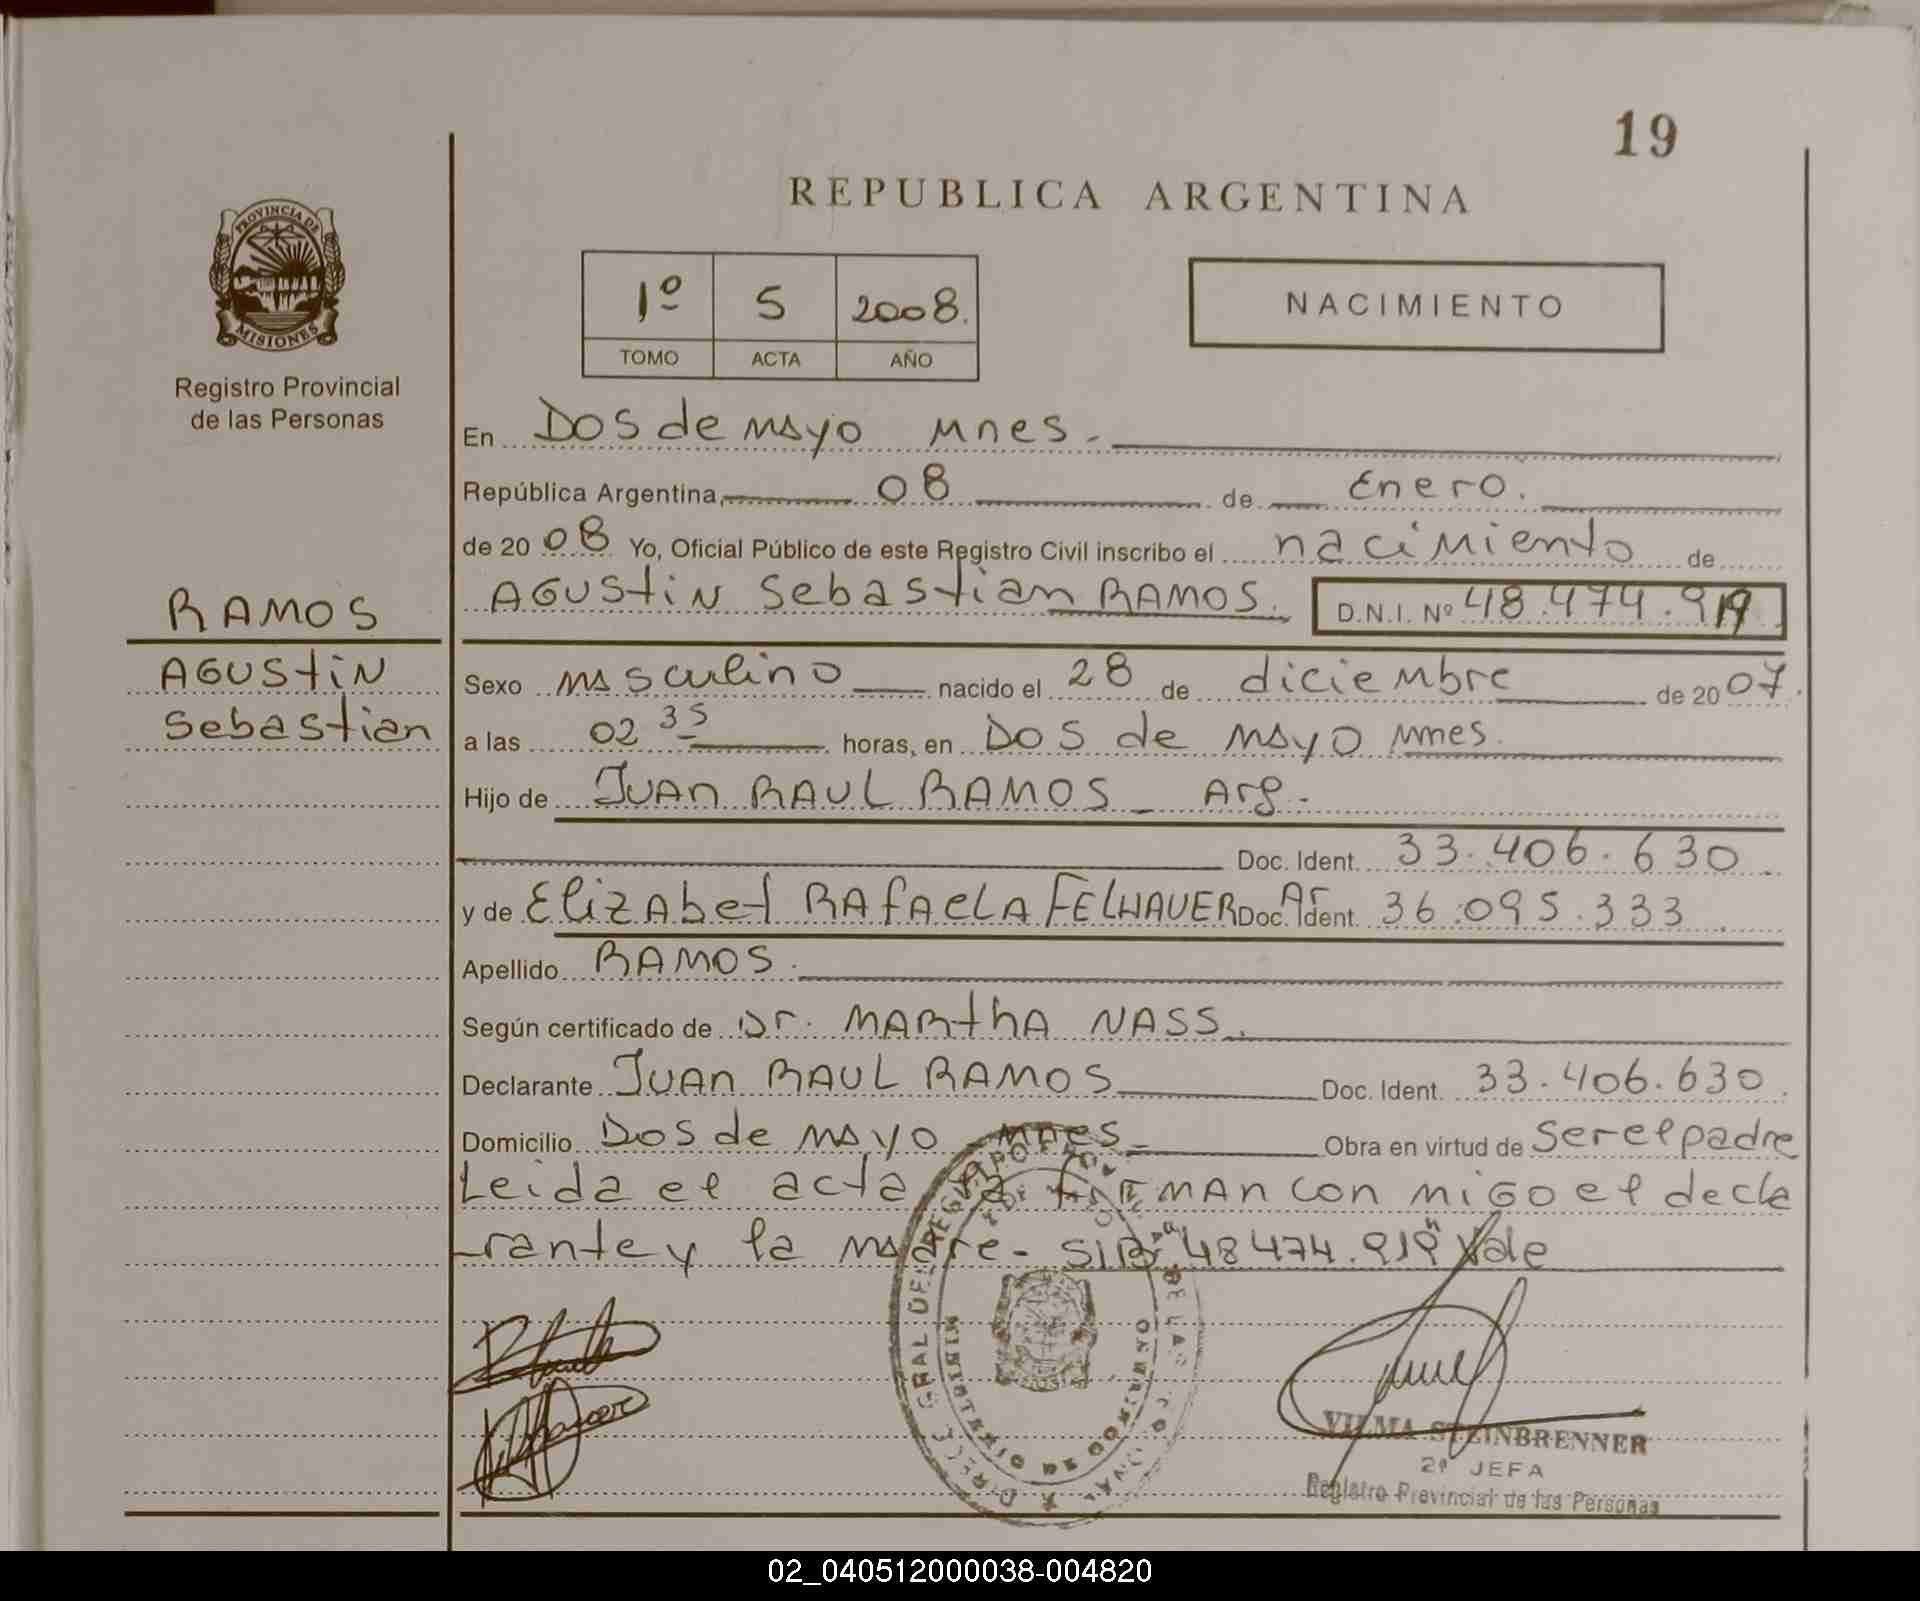 19
REPUBLICA ARGENTINA
PROVINCIA DE
MISIONES
Registro Provincial
de las Personas
1º 5 2008.
TOMO ACTA AÑO
NACIMIENTO
En Dos de mayo Mnes.
República Argentina, 08 de Enero.
de 20 08 Yo, Oficial Público de este Registro Civil inscribo el nacimiento de
AGUStiN Sebastian RAMOS. D.N.I. Nº 48.474.919
RAMOS
AGUStiN
Sebastian
Sexo masculino nacido el 28 de diciembre de 20 07.
a las 02 35 horas, en Dos de mayo Mnes.
Hijo de JUAN RAUL RAMOS - Arg.
Doc. Ident. 33.406.630
y de ElizAbet RAfAelA FELHAUER Ar Doc. Ident. 36.095.333
Apellido RAMOS.
Según certificado de Dr. MARthA NASS.
Declarante JUAN RAUL RAMOS Doc. Ident. 33.406.630
Domicilio Dos de mayo - Mnes - Obra en virtud de Ser el padre
Leida el acta la firman con migo el decla
rante y la madre - S/B: "48474.919" Vale
VILMA STEINBRENNER
2ª JEFA
Registro Provincial de las Personas
02_040512000038-004820